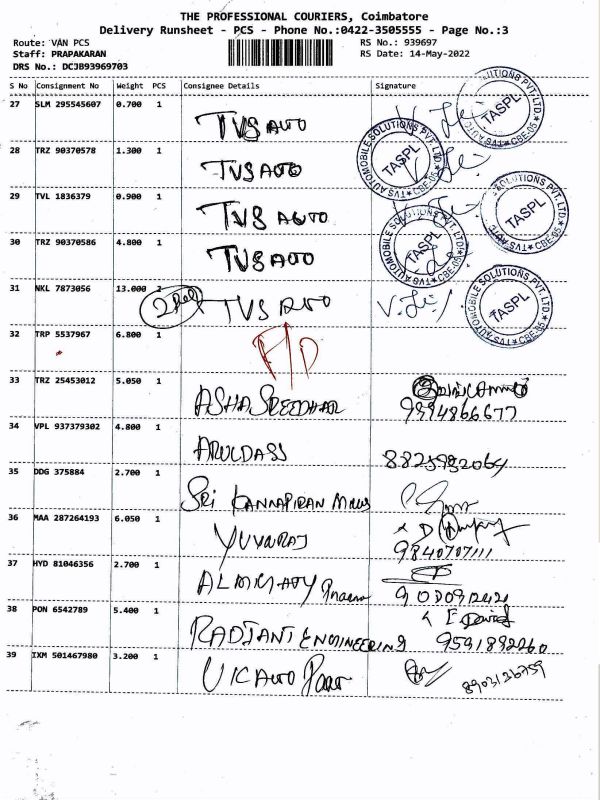 THE PROFESSIONAL COURIERS, Coimbatore
Delivery Runsheet - PCS - Phone No.:0422-3505555 - Page No.:3
Route: VAN PCS RS No.: 939697
Staff: PRAPAKARAN RS Date: 14-May-2022
DRS No.: DCJB93969703
S No Consignment No Weight PCS Consignee Details Signature
27 SLM 295545607 0.700 1 TVS AUTO
TVS AUTOMOBILE SOLUTIONS PVT.LTD. CBE-05 TASPL
28 TRZ 90370578 1.300 1 TVS AUTO
TVS AUTOMOBILE SOLUTIONS PVT.LTD. CBE-05 TASPL
29 TVL 1836379 0.900 1 TVS AUTO
TVS AUTOMOBILE SOLUTIONS PVT.LTD. CBE-05 TASPL
30 TRZ 90370586 4.800 1 TVS AUTO
TVS AUTOMOBILE SOLUTIONS PVT.LTD. CBE-05 TASPL
31 NKL 7873056 13.000 2 TVS AUTO
TVS AUTOMOBILE SOLUTIONS PVT.LTD. CBE-05 TASPL
32 TRP 5537967 6.800 1
33 TRZ 25453012 5.050 1 ASHA SREEDHAR
9394866677
34 VPL 937379302 4.800 1 ARULDASS
35 DDG 375884 2.700 1 SRI KANNAPIRAN Mills
36 MAA 287264193 6.050 1 YUVARAJ
9840707111
37 HYD 81046356 2.700 1
38 PON 6542789 5.400 1 RADIANT ENGINEERING
39 IXM 501467980 3.200 1 VIC AUTO
8903126759